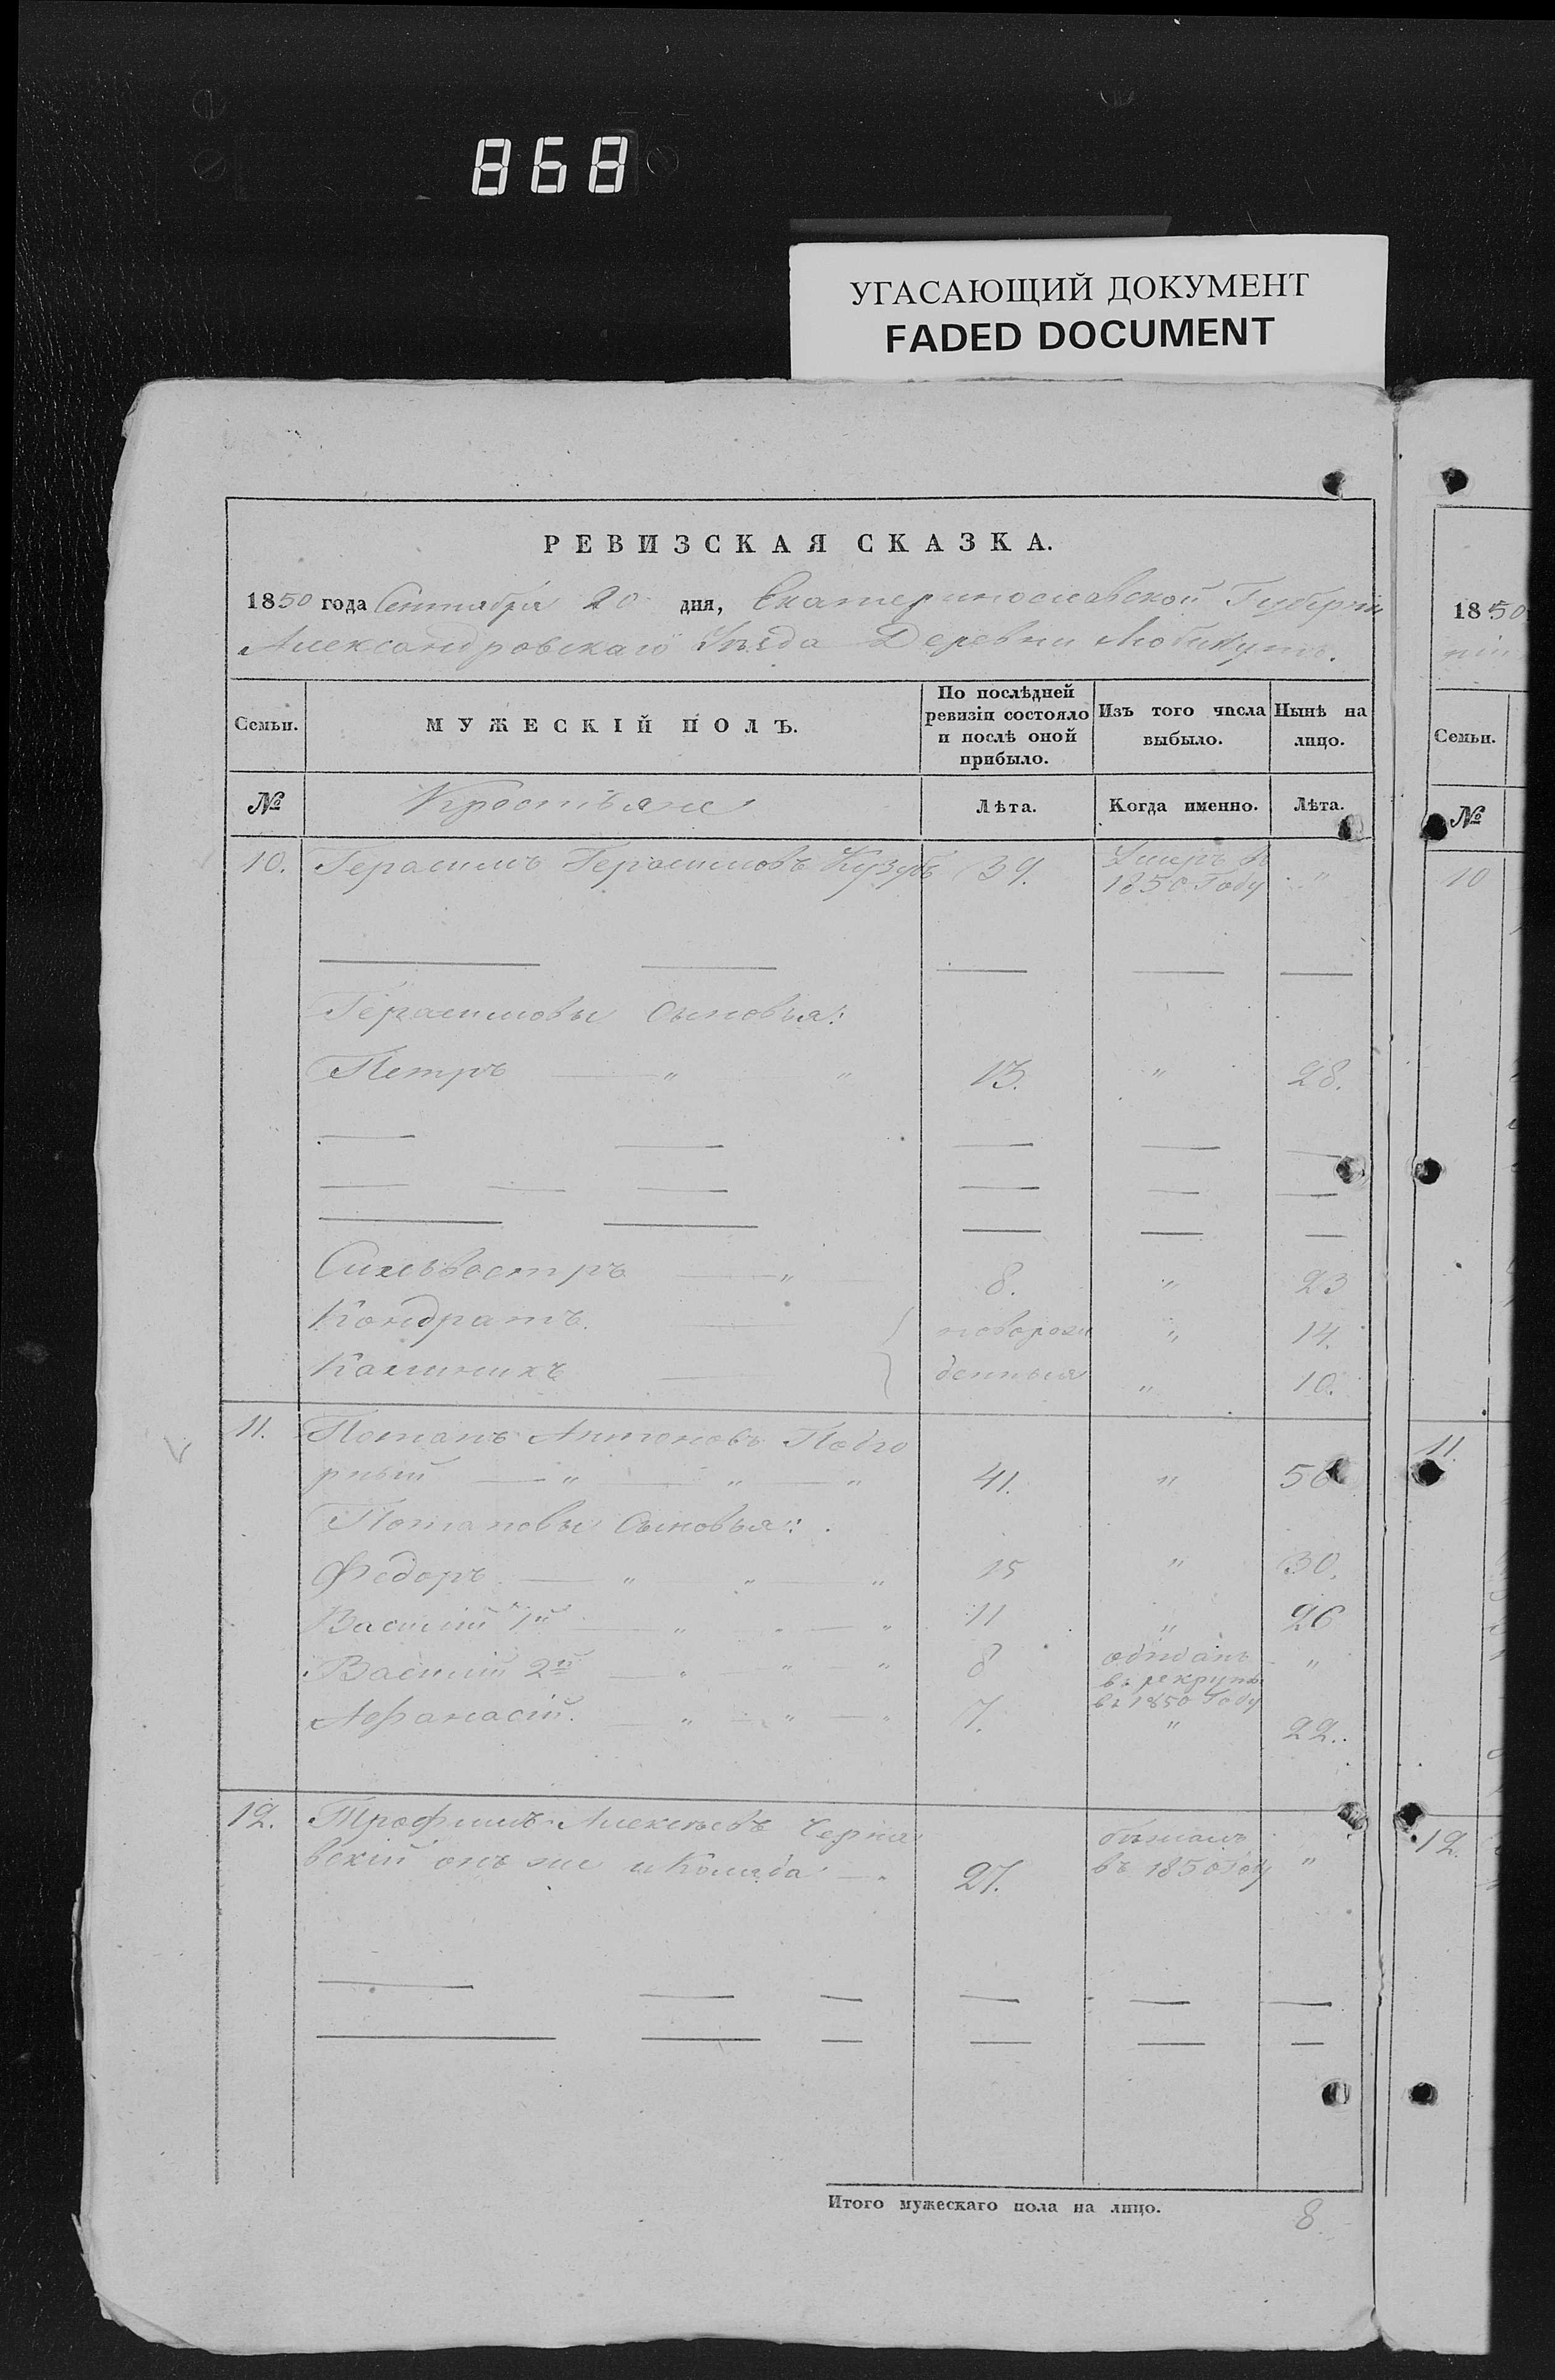 868
УГАСАЮЩИЙ ДОКУМЕНТ
FADED DOCUMENT
РЕВИЗСКАЯ СКАЗКА.
1850 года Сентября 20 дня, Екатеринославской Губерніи
Александровскаго Уѣзда Деревни Любикутъ.
Семьи. МУЖЕСКІЙ ПОЛЪ. По послѣдней ревизіи состояло и послѣ оной прибыло. Изъ того числа выбыло. Нынѣ на лицо.
№ Крестьяне Лѣта. Когда именно. Лѣта.
10. Герасимъ Герасимовъ Кузубъ 39. Умеръ въ 1850 Году "
Герасимовы Сыновья:
Петръ " " 13. " 28.
Сильвестръ " 8. " 23
Кондратъ. новорож " 14.
Калиникъ денныя " 10.
11. Потапъ Антоновъ Подго
рный " " " 41. " 56
Потаповы Сыновья:
Федоръ " " " 15 " 30.
Василій 1й " " " 11 " 26
Василій 2й " " " 8 отданъ въ рекруты въ 1850 Году "
Афанасій. " " " 7. " 22.
12. Трофимъ Алексѣевъ Черня
вскій онъ же и Коляда " 27. бѣжалъ въ 1850 Году "
Итого мужескаго пола на лицо. 8
1850
Семьи.
№
10
11.
12.